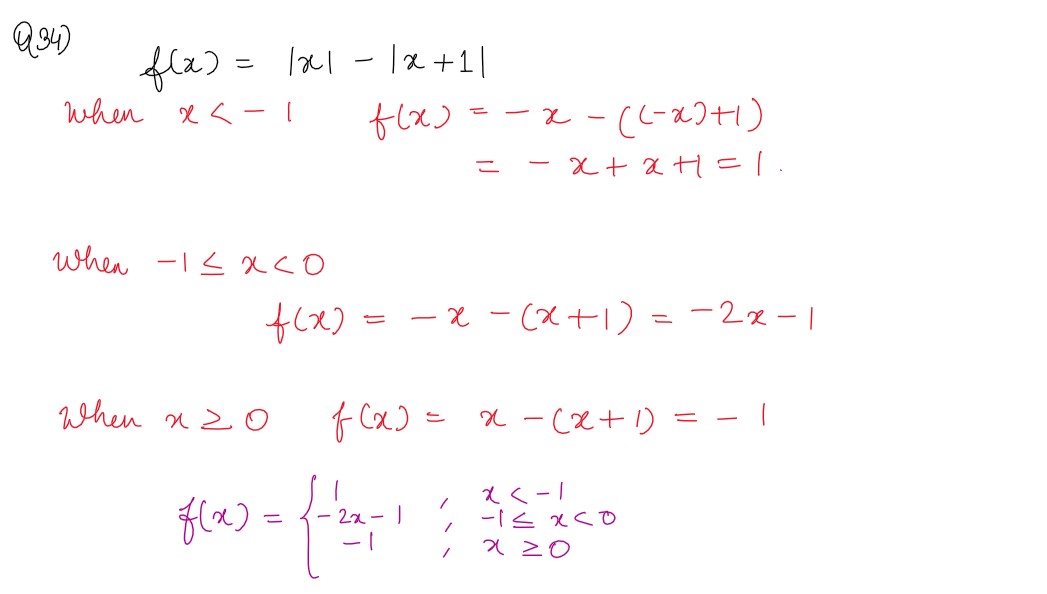 Q34)
f(x) = |x| - |x+1|
When x < -1 f(x) = -x - ((-x)+1)
= -x + x+1 = 1.
When -1 ≤ x < 0
f(x) = -x - (x+1) = -2x - 1
When x ≥ 0 f(x) = x - (x+1) = -1
f(x) = { 1 , x < -1
-2x - 1 , -1 ≤ x < 0
-1 , x ≥ 0